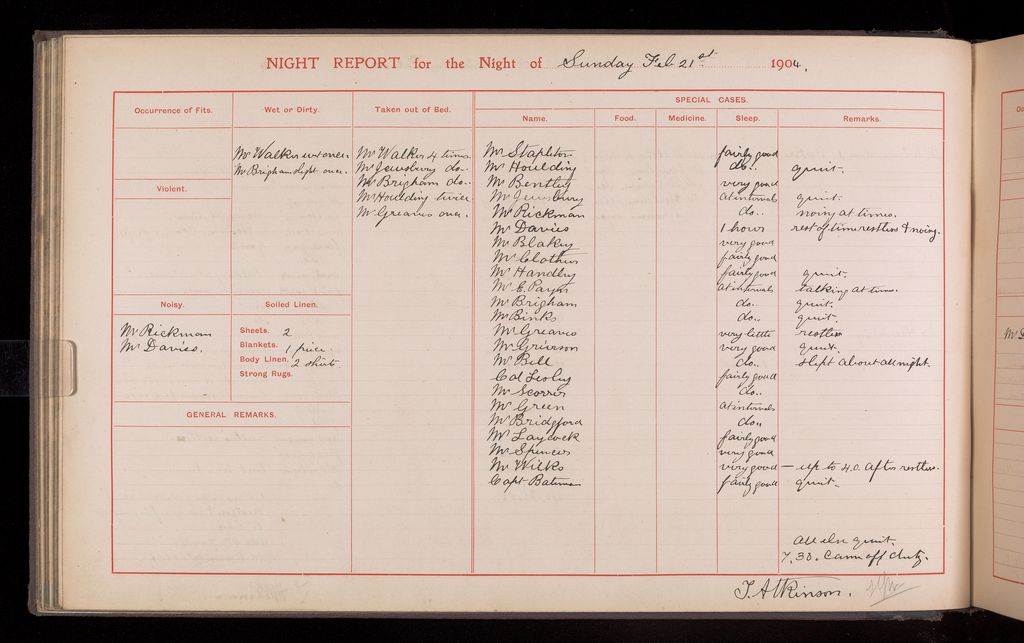 NIGHT REPORT for the Night of Sunday Feb 21st 1904.
Occurrence of Fits.
Wet or Dirty.
Mr Walker wet once.
Mr Brigham slight once.
Violent.
Noisy.
Mr Rickman
Mr Davies.
Soiled Linen.
Sheets. 2
Blankets. 1 piece.
Body Linen. 2 shirts.
Strong Rugs.
GENERAL REMARKS.
Taken out of Bed.
Mr Walker 4 times.
Mr Jewsbury do..
Mr Brigham do..
Mr Houlding twice
Mr Greaves once.
SPECIAL CASES.
Name. Food. Medicine. Sleep. Remarks.
Mr Stapleton fairly good
Mr Houlding do.. quiet.
Mr Bentley very good
Mr Jewsbury at intervals quiet.
Mr Rickman do.. noisy at times.
Mr Davies 1 hour rest of time restless & noisy.
Mr Blakey very good
Mr Clothier fairly good
Mr Handley fairly good quiet.
Mr E. Payn at intervals talking at times.
Mr Brigham do.. quiet.
Mr Binks do.. quiet.
Mr Greaves very little restless
Mr Grierson very good quiet.
Mr Bell do.. slept about all night.
Col Lesley fairly good
Mr Scorrer do..
Mr Green at intervals
Mr Bridgford do..
Mr Laycock fairly good
Mr Spencer very good
Mr Wilks very good — up to 4.0. after restless.
Capt Bateman fairly good quiet.
All else quiet.
7.30. Came off duty.
T. Atkinson.